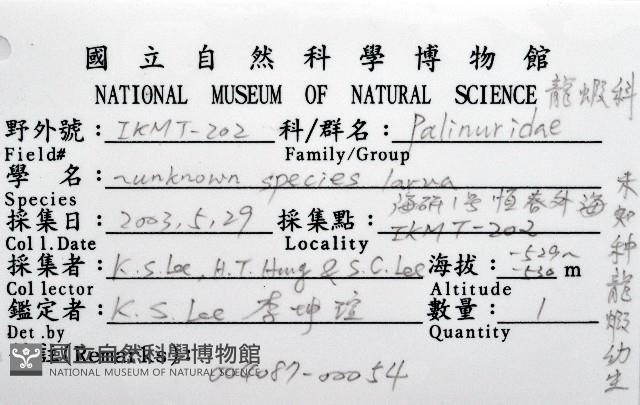 國立自然科學博物館
NATIONAL MUSEUM OF NATURAL SCIENCE 龍蝦科
野外號: IKMT-202 科/群名: Palinuridae
Field# Family/Group
學 名: ~unknown species larva
Species
海研1号 恆春外海
採集日: 2003,5,29 採集點: IKMT-202
Coll.Date Locality
採集者: K.S.Lee, H.T.Hung & S.C.Lee 海拔: -529~-530 m
Collector Altitude
鑑定者: K.S.Lee 李坤瑄 數量: 1
Det.by Quantity
(Remarks):
004087-00054
未知种龍蝦幼生
國立自然科學博物館
NATIONAL MUSEUM OF NATURAL SCIENCE